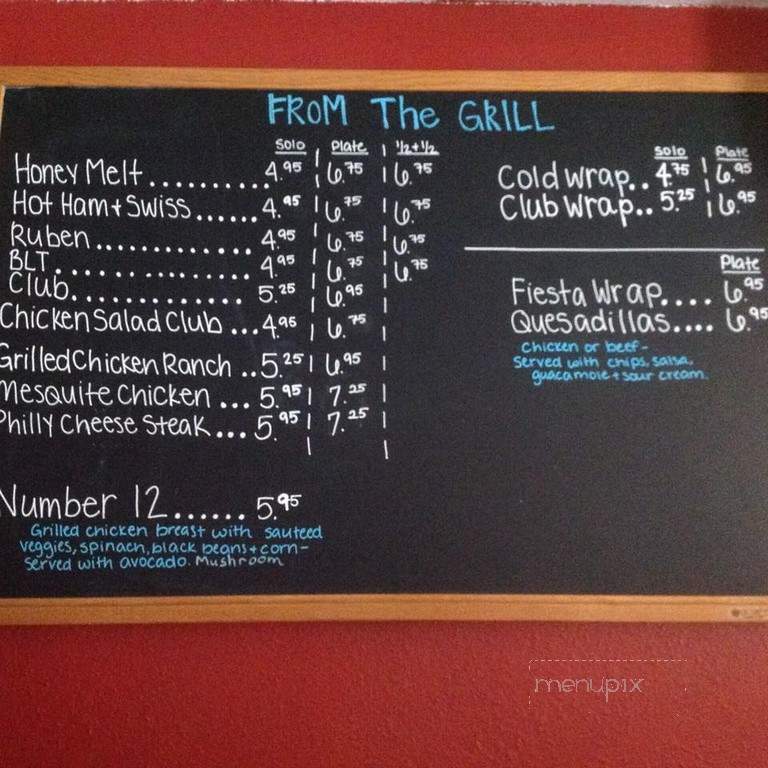 FROM The GRILL
Solo Plate 1/2+1/2
Honey Melt.......... 4.95 6.75 6.75
Hot Ham+Swiss...... 4.95 6.75 6.75
Ruben............. 4.95 6.75 6.75
BLT.............. 4.95 6.75 6.75
Club.............. 5.25 6.95
Chicken Salad Club ... 4.95 6.75
Grilled Chicken Ranch .. 5.25 6.95
Mesquite Chicken ... 5.95 7.25
Philly Cheese Steak... 5.95 7.25
Number 12...... 5.95
Grilled chicken breast with sauteed
veggies, spinach, black beans+corn-
served with avocado. Mushroom
Solo Plate
Cold Wrap.. 4.75 6.95
Club Wrap.. 5.25 6.95
Plate
Fiesta Wrap.... 6.95
Quesadillas.... 6.95
Chicken or beef-
Served with chips, salsa,
guacamole+sour cream.
menupix